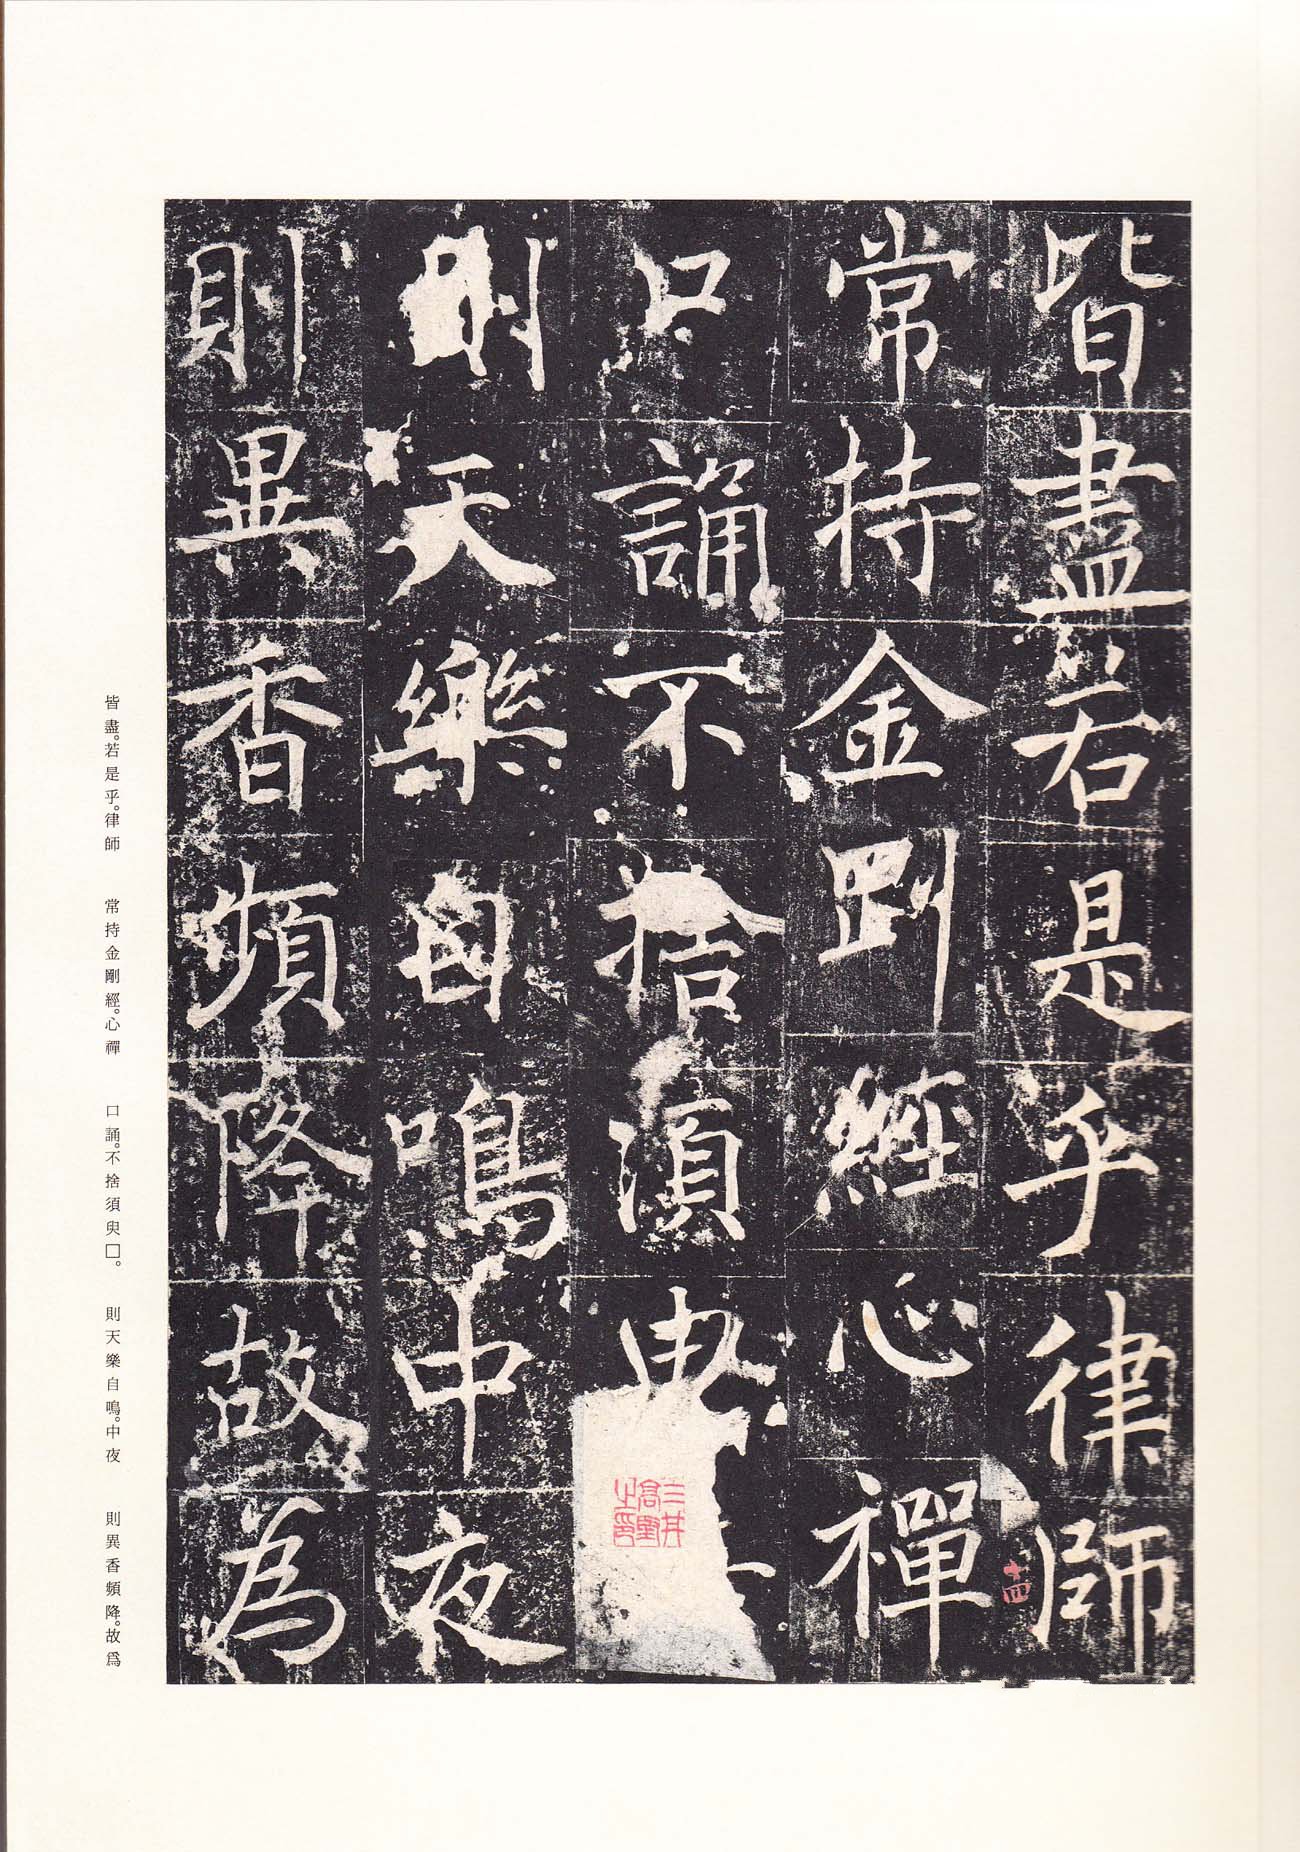 皆盡若是乎律師
常持金剛經心禪
口誦不捨須臾
則天樂自鳴中夜
則異香頻降故為
三井高堅之印
皆盡。若是乎。律師　常持金剛經。心禪　口誦。不捨須臾□。　則天樂自鳴。中夜　則異香頻降。故爲